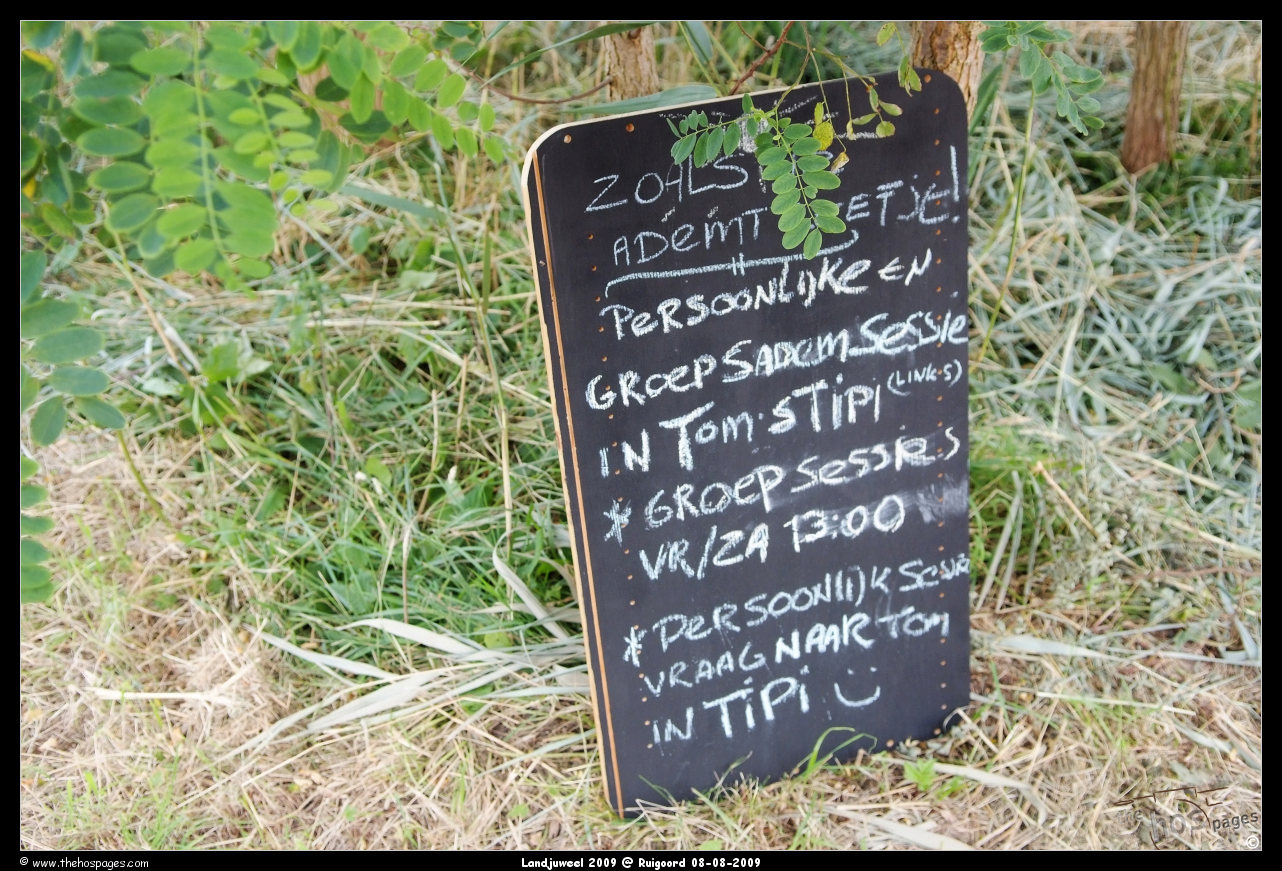 ZOALS
ADEMT JE!
PERSOONLIJKE EN
GROEPSADEM SESSIE
IN TOM'S TIPI (LINKS)
* GROEPSESSIES
VR/ZA 13:00
* PERSOONLIJK
VRAAG NAAR TOM
IN TIPI
© www.thehospages.com
Landjuweel 2009 @ Ruigoord 08-08-2009